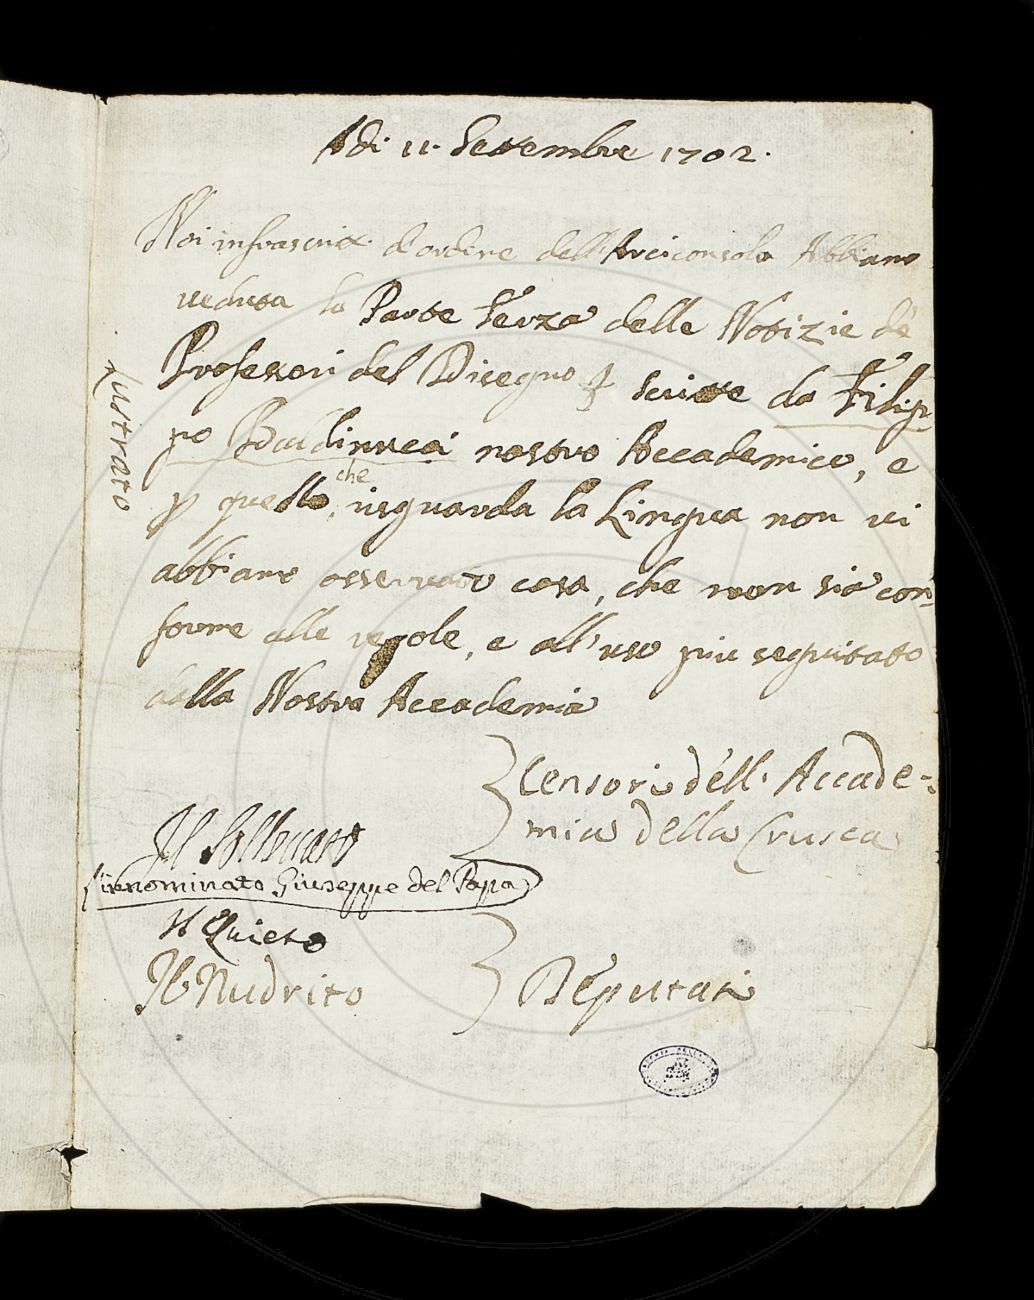 Adi 11. Settembre 1702.
Noi infrascritti d'ordine dell'Arciconsolo Abbiamo
veduta la Parte Terza delle Notizie de'
Professori del Disegno scritte da Filip
po Baldinucci nostro Accademico, e
p quello, che risguarda la Lingua non vi
abbiamo osservato cosa, che non sia con-
forme alle regole, e all'uso piu seguitato
dalla Nostra Accademia
Lustrato
Censori dell'Accade-
mia della Crusca
Il Sollevato
L'innominato Giuseppe del Papa
Il Quieto
Il Nudrito
Deputati